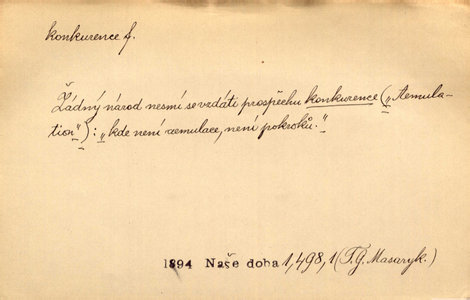 konkurence f.
Žádný národ nesmí se vzdáti prospěchu konkurence („Aemula-
tion“): „kde není aemulace, není pokroků.“
1894 Naše doba 1,498,1 (T.G. Masaryk.)